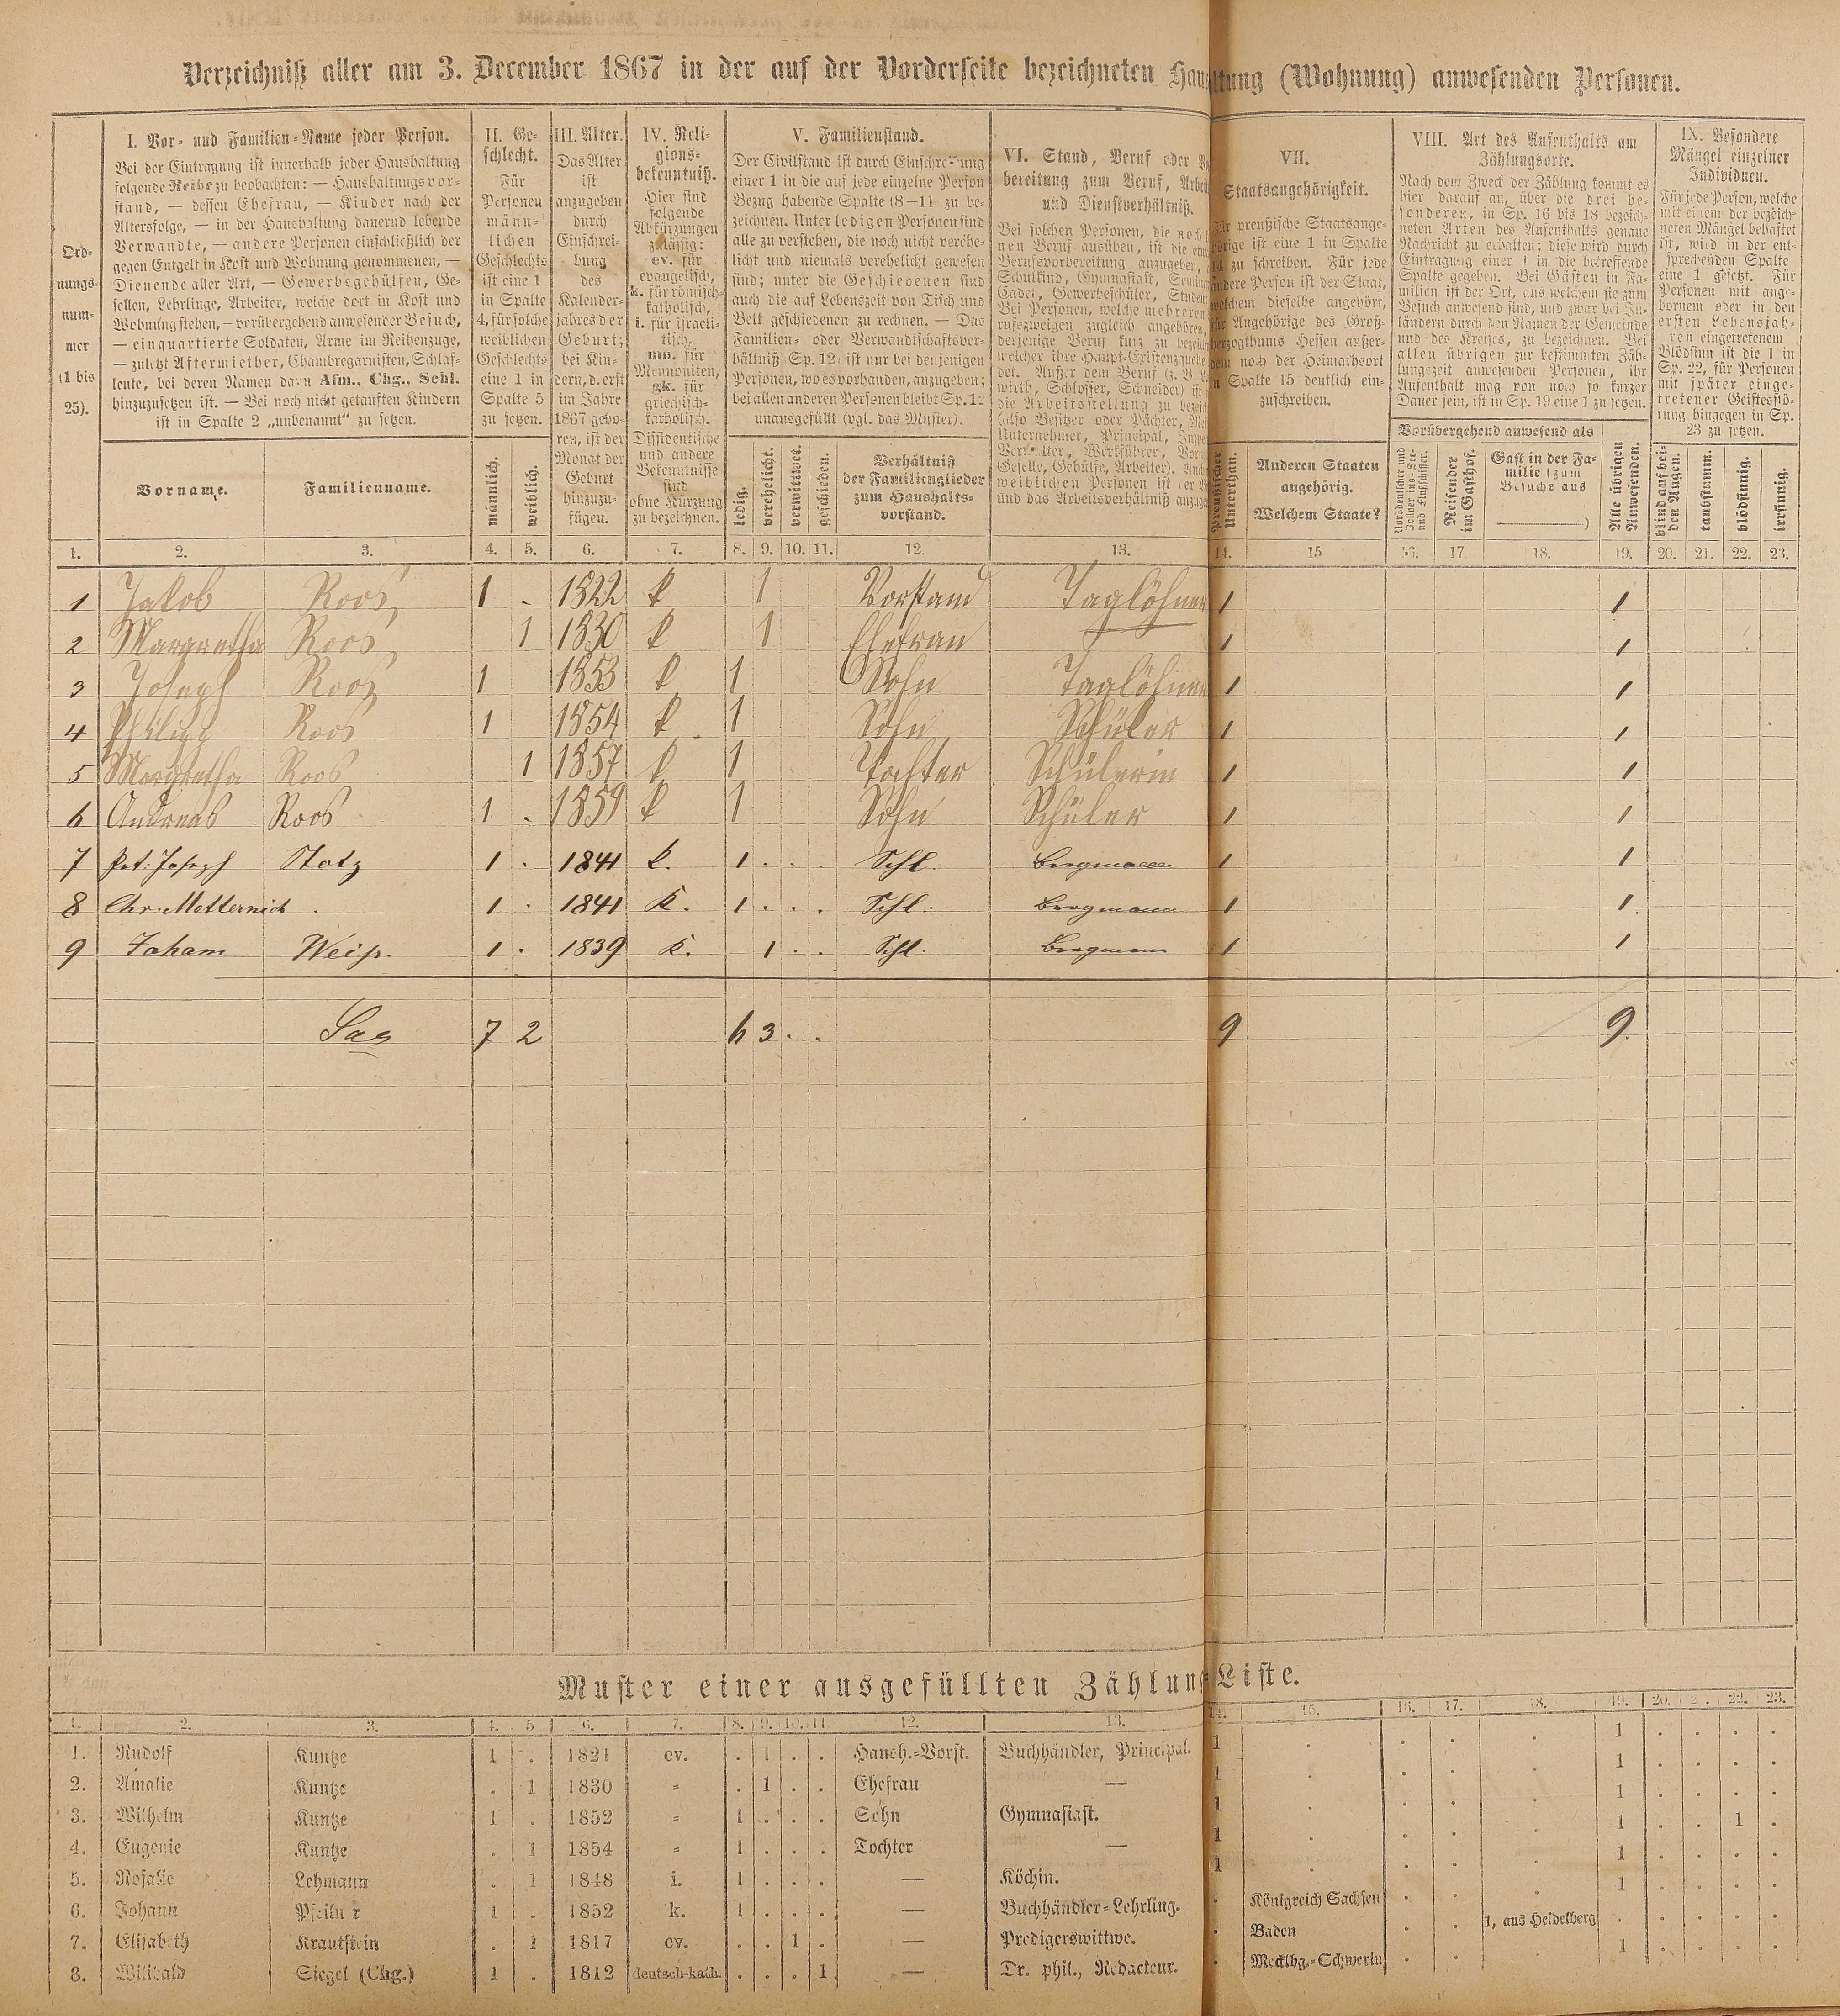 Verzeichniß aller am 3. December 1867 in der auf der Vorderseite bezeichneten Haus ltung (Wohnung) anwesenden Personen.
Ord-
nungs-
num-
mer
(1 bis
25).
I. Vor- und Familien-Name jeder Person.
Bei der Eintragung ist innerhalb jeder Haushaltung
folgende Reihe zu beobachten: — Haushaltungsvor-
stand, — dessen Ehefrau, — Kinder nach der
Altersfolge, — in der Haushaltung dauernd lebende
Verwandte, — andere Personen einschließlich der
gegen Entgelt in Kost und Wohnung genommenen, —
Dienende aller Art, — Gewerbegehülfen, Ge-
sellen, Lehrlinge, Arbeiter, welche dort in Kost und
Wohnung stehen, — vorübergehend anwesender Besuch,
— einquartierte Soldaten, Arme im Reihenzuge,
— zuletzt Aftermiether, Chambregarnisten, Schlaf-
leute, bei deren Namen dann Afm., Chg., Schl.
hinzuzusetzen ist. — Bei noch nicht getauften Kindern
ist in Spalte 2 „unbenannt“ zu setzen.
Vorname.
Familienname.
II. Ge-
schlecht.
Für
Personen
männ-
lichen
Geschlechts
ist eine 1
in Spalte
4, für solche
weiblichen
Geschlechts
eine 1 in
Spalte 5
zu setzen.
männlich.
weiblich.
III. Alter.
Das Alter
ist
anzugeben
durch
Einschrei-
bung
des
Kalender-
jahres der
Geburt;
bei Kin-
dern, d. erst
im Jahre
1867 gebo-
ren, ist der
Monat der
Geburt
hinzuzu-
fügen.
IV. Reli-
gions-
bekenntniß.
Hier sind
folgende
Abkürzungen
zulässig:
ev. für
evangelisch,
k. für römisch-
katholisch,
i. für israeli-
tisch,
mn. für
Mennoniten,
gk. für
griechisch-
katholisch.
Dissidentische
und andere
Bekenntnisse
sind
ohne Kürzung
zu bezeichnen.
V. Familienstand.
Der Civilstand ist durch Einschreibung
einer 1 in die auf jede einzelne Person
Bezug habende Spalte (8—11 zu be-
zeichnen. Unter ledigen Personen sind
alle zu verstehen, die noch nicht verehe-
licht und niemals verehelicht gewesen
sind; unter die Geschiedenen sind
auch die auf Lebenszeit von Tisch und
Bett geschiedenen zu rechnen. — Das
Familien- oder Verwandtschaftsver-
hältniß (Sp. 12) ist nur bei denjenigen
Personen, wo es vorhanden, anzugeben;
bei allen anderen Personen bleibt Sp. 12
unausgefüllt (vgl. das Muster).
ledig.
verehelicht.
verwittwet.
geschieden.
Verhältniß
der Familienglieder
zum Haushalts-
vorstand.
VI. Stand, Beruf oder
bereitung zum Beruf,
und Dienstverhältniß.
Bei solchen Personen, die noch
nen Beruf ausüben, ist die
Berufsvorbereitung anzugeben,
Schulkind, Gymnasiast,
Cadet, Gewerbeschüler,
Bei Personen, welche mehreren
rufszweigen zugleich angehören,
derjenige Beruf kurz zu
welcher ihre Haupt-Existenzquelle
det. Außer dem Beruf (z. B.
wirth, Schlosser, Schneider) ist
die Arbeitsstellung zu
(also Besitzer oder Pächter,
Unternehmer, Prinzipal,
Verwalter, Werkführer,
Geselle, Gehülfe, Arbeiter).
weiblichen Personen ist der
und das Arbeitsverhältniß
VII.
Staatsangehörigkeit.
Für preußische Staatsange-
hörige ist eine 1 in Spalte
14 zu schreiben. Für jede
andere Person ist der Staat,
welchem dieselbe angehört,
für Angehörige des Groß-
herzogthums Hessen außer-
dem noch der Heimathsort
in Spalte 15 deutlich ein-
zuschreiben.
Preußischer
Unterthan.
Anderen Staaten
angehörig.
Welchem Staate?
VIII. Art des Aufenthalts am
Zählungsorte.
Nach dem Zweck der Zählung kommt es
hier darauf an, über die drei be-
sonderen, in Sp. 16 bis 18 bezeich-
neten Arten des Aufenthalts genaue
Nachricht zu erhalten; diese wird durch
Eintragung einer 1 in die betreffende
Spalte gegeben. Bei Gästen in Fa-
milien ist der Ort, aus welchem sie zum
Besuch anwesend sind, und zwar bei In-
ländern durch den Namen der Gemeinde
und des Kreises, zu bezeichnen. Bei
allen übrigen zur bestimmten Zäh-
lungszeit anwesenden Personen, ihr
Aufenthalt mag von noch so kurzer
Dauer sein, ist in Sp. 19 eine 1 zu setzen.
Vorübergehend anwesend als
Norddeutscher und
Zollver ins-See-
und Flußschiffer.
Reisender
im Gasthof.
Gast in der Fa-
milie (zum
Besuche aus
)
Alle übrigen
Anwesenden.
IX. Besondere
Mängel einzelner
Individuen.
Für jede Person, welche
mit einem der bezeich-
neten Mängel behaftet
ist, wird in der ent-
sprechenden Spalte
eine 1 gesetzt. Für
Personen mit ange-
bornem oder in den
ersten Lebensjah-
ren eingetretenem
Blödsinn ist die 1 in
Sp. 22, für Personen
mit später einge-
tretener Geistesstö-
rung hingegen in Sp.
23 zu setzen.
blind auf bei-
den Augen.
taubstumm.
blödsinnig.
irrsinnig.
1. 2. 3. 4. 5. 6. 7. 8. 9. 10. 11. 12. 13. 14. 15 16. 17. 18. 19. 20. 21. 22. 23.
1 Jakob Roos 1 . 1822 k 1 Vorstand Taglöhner 1 1
2 Margretha Roos 1 1830 k 1 Ehefrau 1 1
3 Joseph Roos 1 1853 k 1 Sohn Taglöhner 1 1
4 Philipp Roos 1 1854 k 1 Sohn Schüler 1 1
5 Margretha Roos 1 1857 k 1 Tochter Schülerin 1 1
6 Andreas Roos 1 . 1859 k 1 Sohn Schüler 1 1
7 Pet: Joseph Stotz 1 . 1841 k. 1 . . . Schl. Bergmann 1 1
8 Chr: Metternich . 1 . 1841 K. 1 . . . Schl. Bergmann 1 1
9 Johann Weiß. 1 . 1839 K. 1 . . Schl. Bergmann 1 1
7 2 6 3 . . 9 9.
Muster einer ausgefüllten Zählung Liste.
1. 2. 3. 4. 5 6. 7. 8. 9. 10. 11. 12. 13. 14. 15. 16. 17. 18. 19. 20. 21. 22. 23.
1. Rudolf Kuntze 1 . 1821 ev. . 1 . . Haush.-Vorst. Buchhändler, Principal. 1 . . . . 1 . . . .
2. Amalie Kuntze . 1 1830 „ . 1 . . Ehefrau — 1 . . . . 1 . . . .
3. Wilhelm Kuntze 1 . 1852 „ 1 . . . Sohn Gymnasiast. 1 . . . . 1 . . . .
4. Eugenie Kuntze . 1 1854 „ 1 . . . Tochter — 1 . . . . 1 . . 1 .
5. Rosalie Lehmann . 1 1848 i. 1 . . . — Köchin. 1 . . . . 1 . . . .
6. Johann Pfeilner 1 . 1852 k. 1 . . . — Buchhändler-Lehrling. . Königreich Sachsen . . . 1 . . . .
7. Elisabeth Krautstein . 1 1817 ev. . . 1 . — Predigerswittwe. . Baden . . 1, aus Heidelberg . . . . .
8. Wilibald Siegel (Chg.) 1 . 1812 deutsch-kath. . . . 1 — Dr. phil., Redacteur. . Mecklbg.-Schwerin . . . 1 . . . .